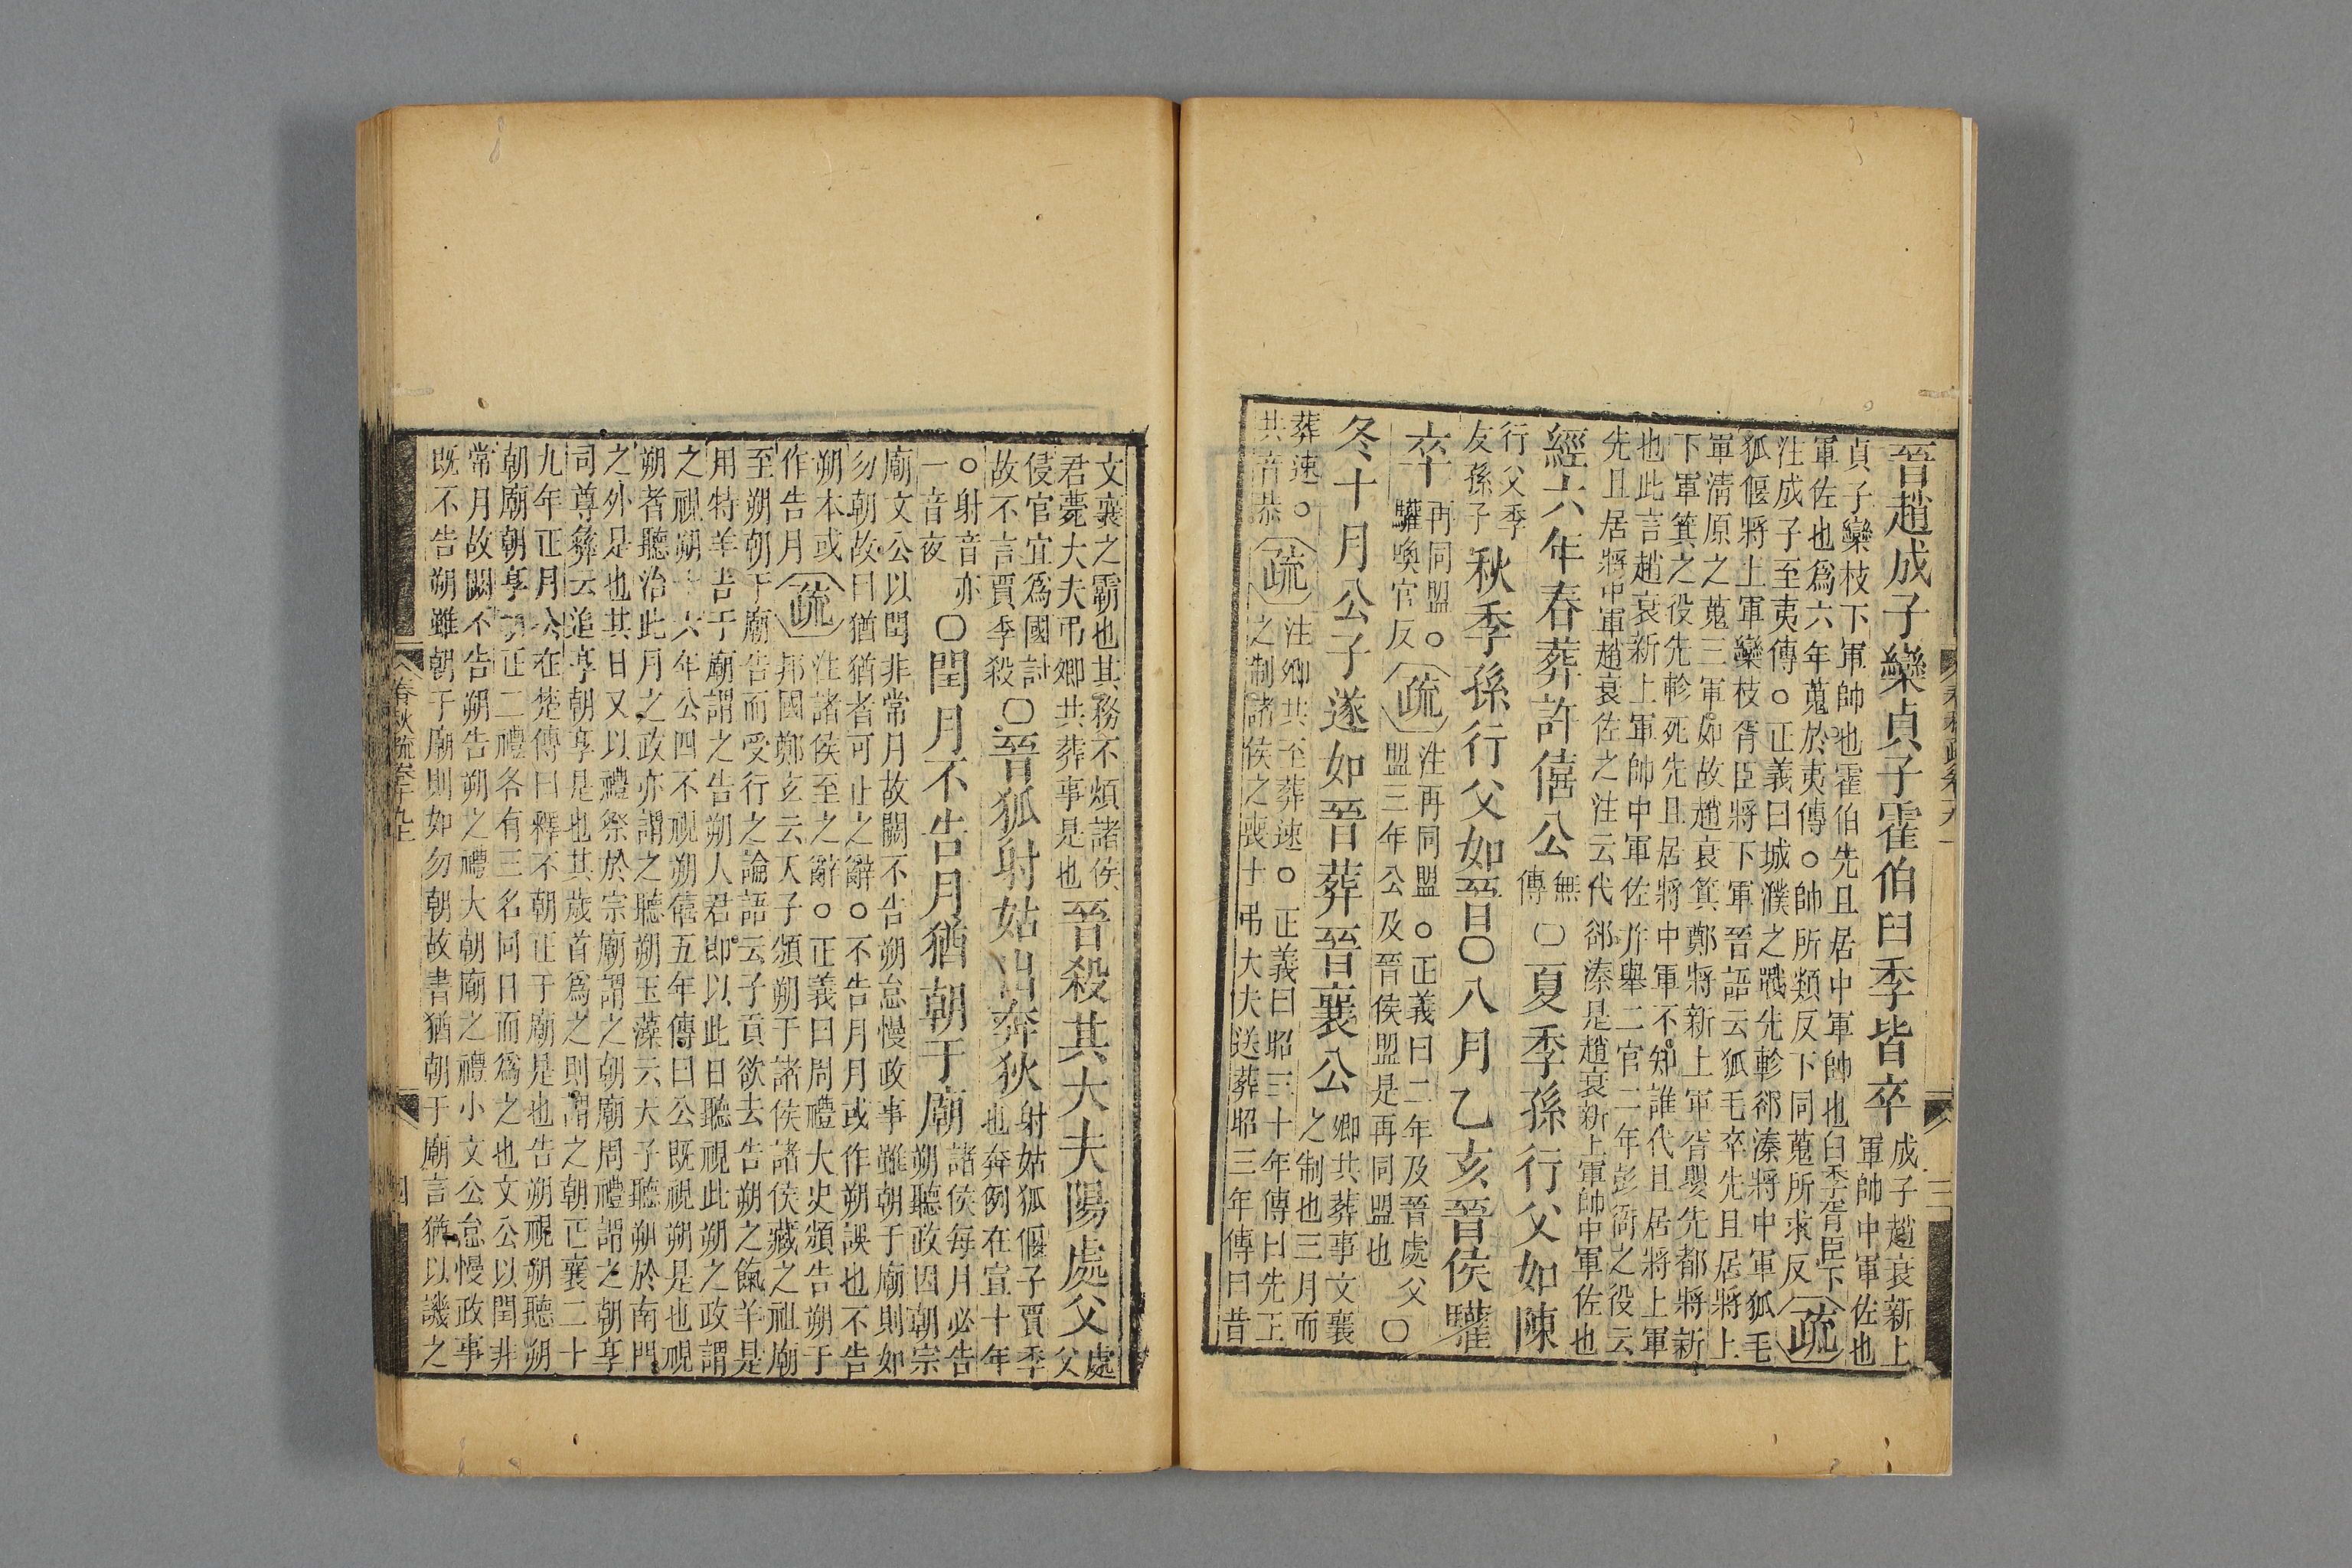 晉趙成子欒貞子霍伯臼季皆卒成子趙衰新上軍帥中軍佐也
貞子欒枝下軍帥也霍伯先且居中軍帥也臼季胥臣下
軍佐也爲六年蒐於夷傳○帥所類反下同蒐所求反疏
注成子至夷傳○正義曰城濮之戰先軫郤溱將中軍狐毛
狐偃將上軍欒枝胥臣將下軍晉語云狐毛卒先且居將上
軍清原之蒐三軍如故趙衰箕鄭將新上軍胥嬰先都將新
下軍箕之役先軫死先且居將中軍不知誰代且居將上軍
也此言趙衰新上軍帥中軍佐並舉二官二年彭衙之役云
先且居將中軍趙衰佐之注云代郤溱是趙衰新上軍帥中軍佐也
經六年春葬許僖公無傳○夏季孫行父如陳
行父季友孫子秋季孫行父如晉○八月乙亥晉侯驩
卒再同盟○驩喚官反疏注再同盟○正義曰二年及晉處父盟三年公及晉侯盟是再同盟也○
冬十月公子遂如晉葬晉襄公卿共葬事文襄之制也三月而
葬速○共音恭疏注卿共至葬速○正義曰昭三十年傳曰先王之制諸侯之喪士弔大夫送葬昭三年傳曰昔
文襄之霸也其務不煩諸侯君薨大夫弔卿共葬事是也晉殺其大夫陽處父處父
侵官宜爲國討故不言賈季殺○晉狐射姑出奔狄射姑狐偃子賈季也奔例在宣十年
○射音亦一音夜○閏月不告月猶朝于廟諸侯每月必告朔聽政因朝宗
廟文公以閏非常月故闕不告朔怠慢政事雖朝于廟則如
勿朝故曰猶猶者可止之辭○不告月月或作朔誤也不告
朔本或作告月疏注諸侯至之辭○正義曰周禮大史頒告朔于邦國鄭玄云天子頒朔于諸侯諸侯藏之祖廟
至朔朝于廟告而受行之論語云子貢欲去告朔之餼羊是
用特羊告于廟謂之告朔人君即以此日聽視此朔之政謂
之視朔十六年公四不視朔僖五年傳曰公既視朔是也視
朔者聽治此月之政亦謂之聽朔玉藻云天子聽朔於南門
之外是也其日又以禮祭於宗廟謂之朝廟周禮謂之朝享
司尊彝云追享朝享是也其歲首爲之則謂之朝正襄二十
九年正月公在楚傳曰釋不朝正于廟是也告朔視朔聽朔
朝廟朝享朝正二禮各有三名同日而爲之也文公以閏非
常月故闕不告朔告朔之禮大朝廟之禮小文公怠慢政事
既不告朔雖朝于廟則如勿朝故書猶朝于廟言猶以譏之